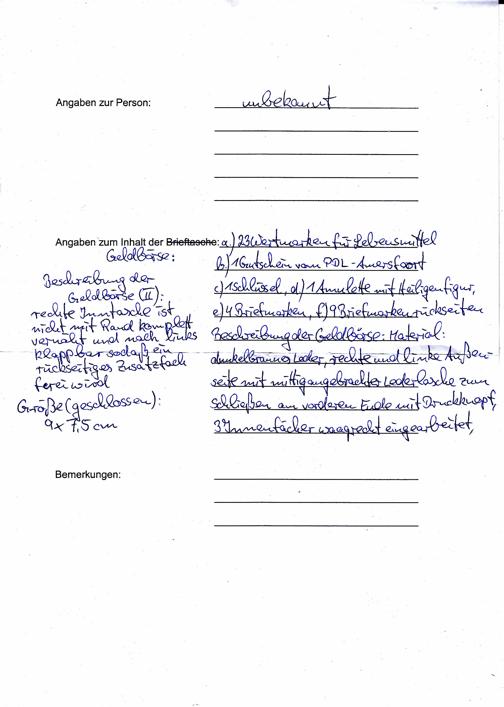 Angaben zur Person: unbekannt
Angaben zum Inhalt der Brieftasche: a) 23 Wertmarken für Lebensmittel
Geldbörse:
b) 1 Gutschein vom PDL-Amersfoort
c) 1 Schlüssel, d) 1 Amulette mit Heiligenfigur,
e) 4 Briefmarken, f) 9 Briefmarkenrückseiten
Beschreibung der Geldbörse: Material:
dunkelbraunes Leder, rechte und linke Außen-
seite mit mittig angebrachter Lederlasche zum
schließen am vorderen Ende mit Druckknopf,
3 Innenfächer waagrecht eingearbeitet,
Beschreibung der
Geldbörse (II):
rechte Inntasche ist
nicht mit Rand komplett
vernäht und nach links
klappbar sodaß ein
rückseitiges Zusatzfach
ferei wird
Größe (geschlossen):
9 x 7,5 cm
Bemerkungen: